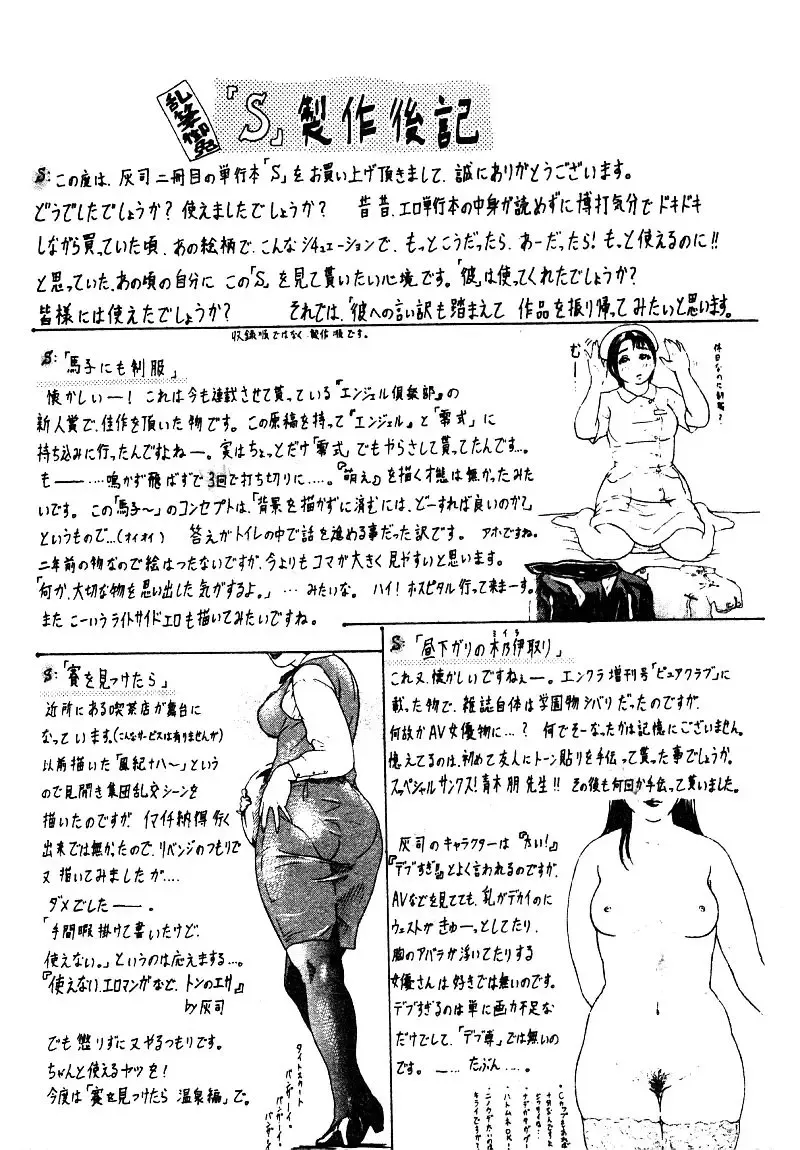 乱筆御免
『S』製作後記
S: この度は、灰司二冊目の単行本「S」をお買い上げ頂きまして、誠にありがとうございます。
どうでしたでしょうか？使えましたでしょうか？ 昔昔、エロ単行本の中身が読めずに博打気分でドキドキ
しながら買っていた頃、あの絵柄で、こんなシチュエーションで、もっとこうだったら、あーだったら！もっと使えるのに!!
と思っていた、あの頃の自分に この「S」を見て貰いたい心境です。「彼」は使ってくれたでしょうか？
皆様には使えたでしょうか？ それでは、「彼への言い訳も踏まえて 作品を振り帰ってみたいと思います。
収録順ではなく、製作順です。
S:「馬子にも制服」
懐かしいー！ これは今も連載させて貰っている『エンジェル倶楽部』の
新人賞で、佳作を頂いた物です。この原稿を持って『エンジェル』と「零式」に
持ち込みに行ったんですよねー。実はちょっとだけ「零式」でもやらさして貰ってたんです…。
も――…‥鳴かず飛ばずで3回で打ち切りに…‥。『萌え』を描く才態は無かったみた
いです。この「馬子～」のコンセプトは、「背景を描かずに済むには、どーすれば良いのか？」
というもので…(オイオイ) 答えがトイレの中で話を進める事だった訳です。アホですね。
二年前の物なので絵はつたないですが、今よりもコマが大きく見やすいと思います。
「何か、大切な物を思い出した気がするよ。」…みたいな。ハイ！ホスピタル行って来まーす。
また こーいうライトサイドエロも描いてみたいですね。
休日なのに制服？
むー
S:「賽を見つけたら」
近所にある喫茶店が舞台に
なっています。(こんなサービスは有りませんが)
以前描いた「風紀十八～」という
ので見開き集団乱交シーンを
描いたのですが イマイチ納得行く
出来では無かったので、リベンジのつもりで
又描いてみましたが‥‥
ダメでした――。
「手間暇掛けて書いたけど、
使えない。」というのは応えまする…。
『使えないエロマンガなど、トンのエサ』
by灰司
でも懲りずに又やるつもりです。
ちゃんと使えるヤツを！
今度は「賽を見つけたら 温泉編」で。
タイトスカート
バンザーイ、
バンザーイ、
バンザーイ
S「昼下がりの木乃伊取り」
ミイラ
これ又、懐かしいですねぇー。エンクラ増刊号「ピュアクラブ」に
載った物で、雑誌自体は学園物シバリだったのですが、
何故かAV女優物に…？ 何でそーなったかは記憶にございません。
憶えてるのは、初めて友人にトーン貼りを手伝って貰った事でしょうか。
スペシャルサンクス！青木朋先生!! その後も何回か手伝って貰いました。
灰司のキャラクターは『太い！』
『デブすぎ』とよく言われるのですが、
AVなどを見てても、乳がデカイのに
ウェストが きゅーっとしてたり、
胸のアバラが浮いてたりする
女優さんは好きでは無いのです。
デブすぎるのは単に画力不足な
だけでして、「デブ専」では無いの
です。―… たぶん…。
・ハトムネOK！
キライですが？